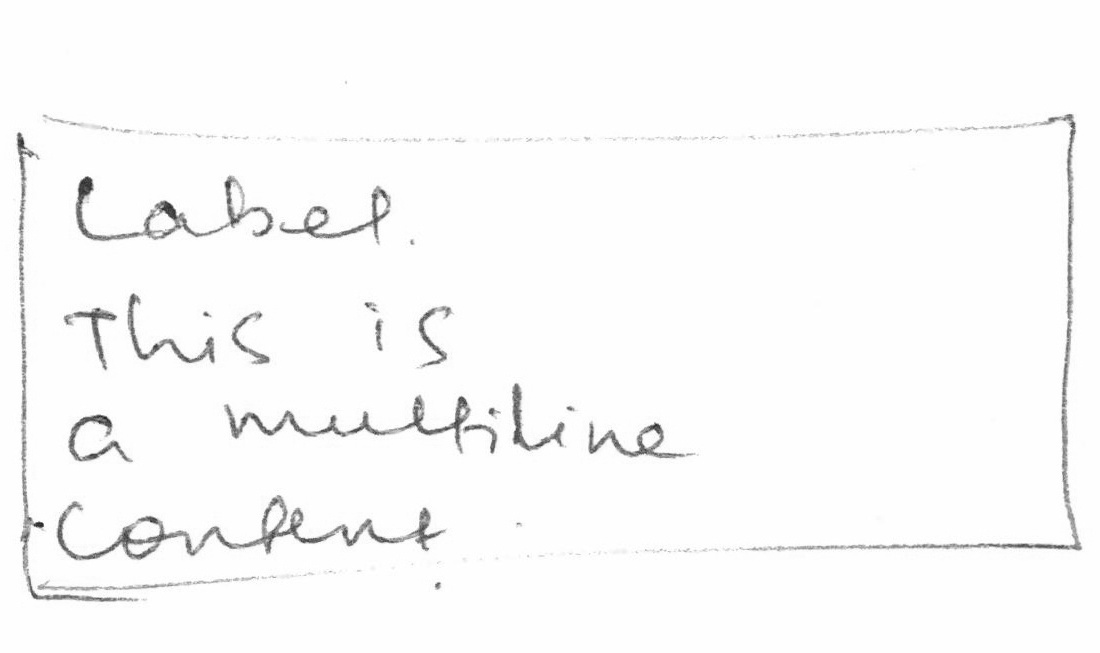 Label.
This is
a multiline
Content